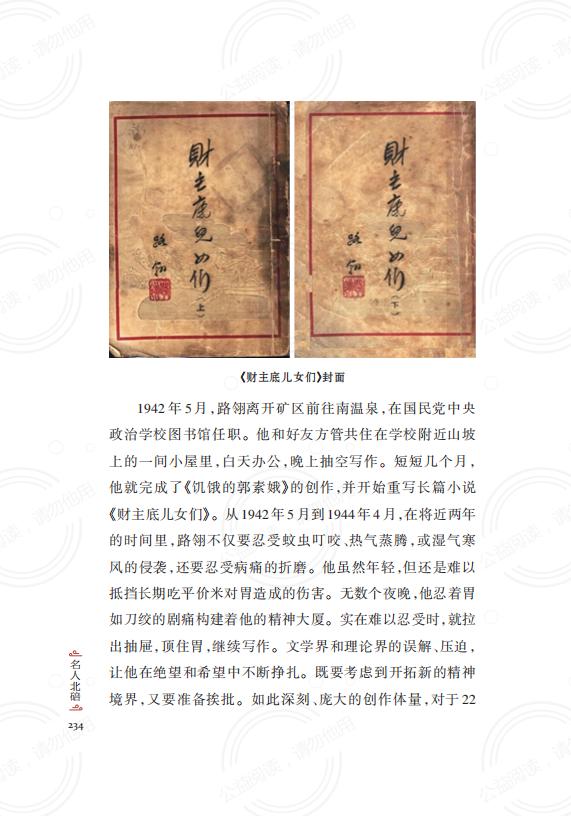 財主底兒女们
(上)
路翎
財主底兒女们
(下)
路翎
《财主底儿女们》封面
1942 年 5 月，路翎离开矿区前往南温泉，在国民党中央
政治学校图书馆任职。他和好友方管共住在学校附近山坡
上的一间小屋里，白天办公，晚上抽空写作。短短几个月，
他就完成了《饥饿的郭素娥》的创作，并开始重写长篇小说
《财主底儿女们》。从 1942 年 5 月到 1944 年 4 月，在将近两年
的时间里，路翎不仅要忍受蚊虫叮咬、热气蒸腾，或湿气寒
风的侵袭，还要忍受病痛的折磨。他虽然年轻，但还是难以
抵挡长期吃平价米对胃造成的伤害。无数个夜晚，他忍着胃
如刀绞的剧痛构建着他的精神大厦。实在难以忍受时，就拉
出抽屉，顶住胃，继续写作。文学界和理论界的误解、压迫，
让他在绝望和希望中不断挣扎。既要考虑到开拓新的精神
境界，又要准备挨批。如此深刻、庞大的创作体量，对于 22
名人北碚
234
公益阅读，请勿他用